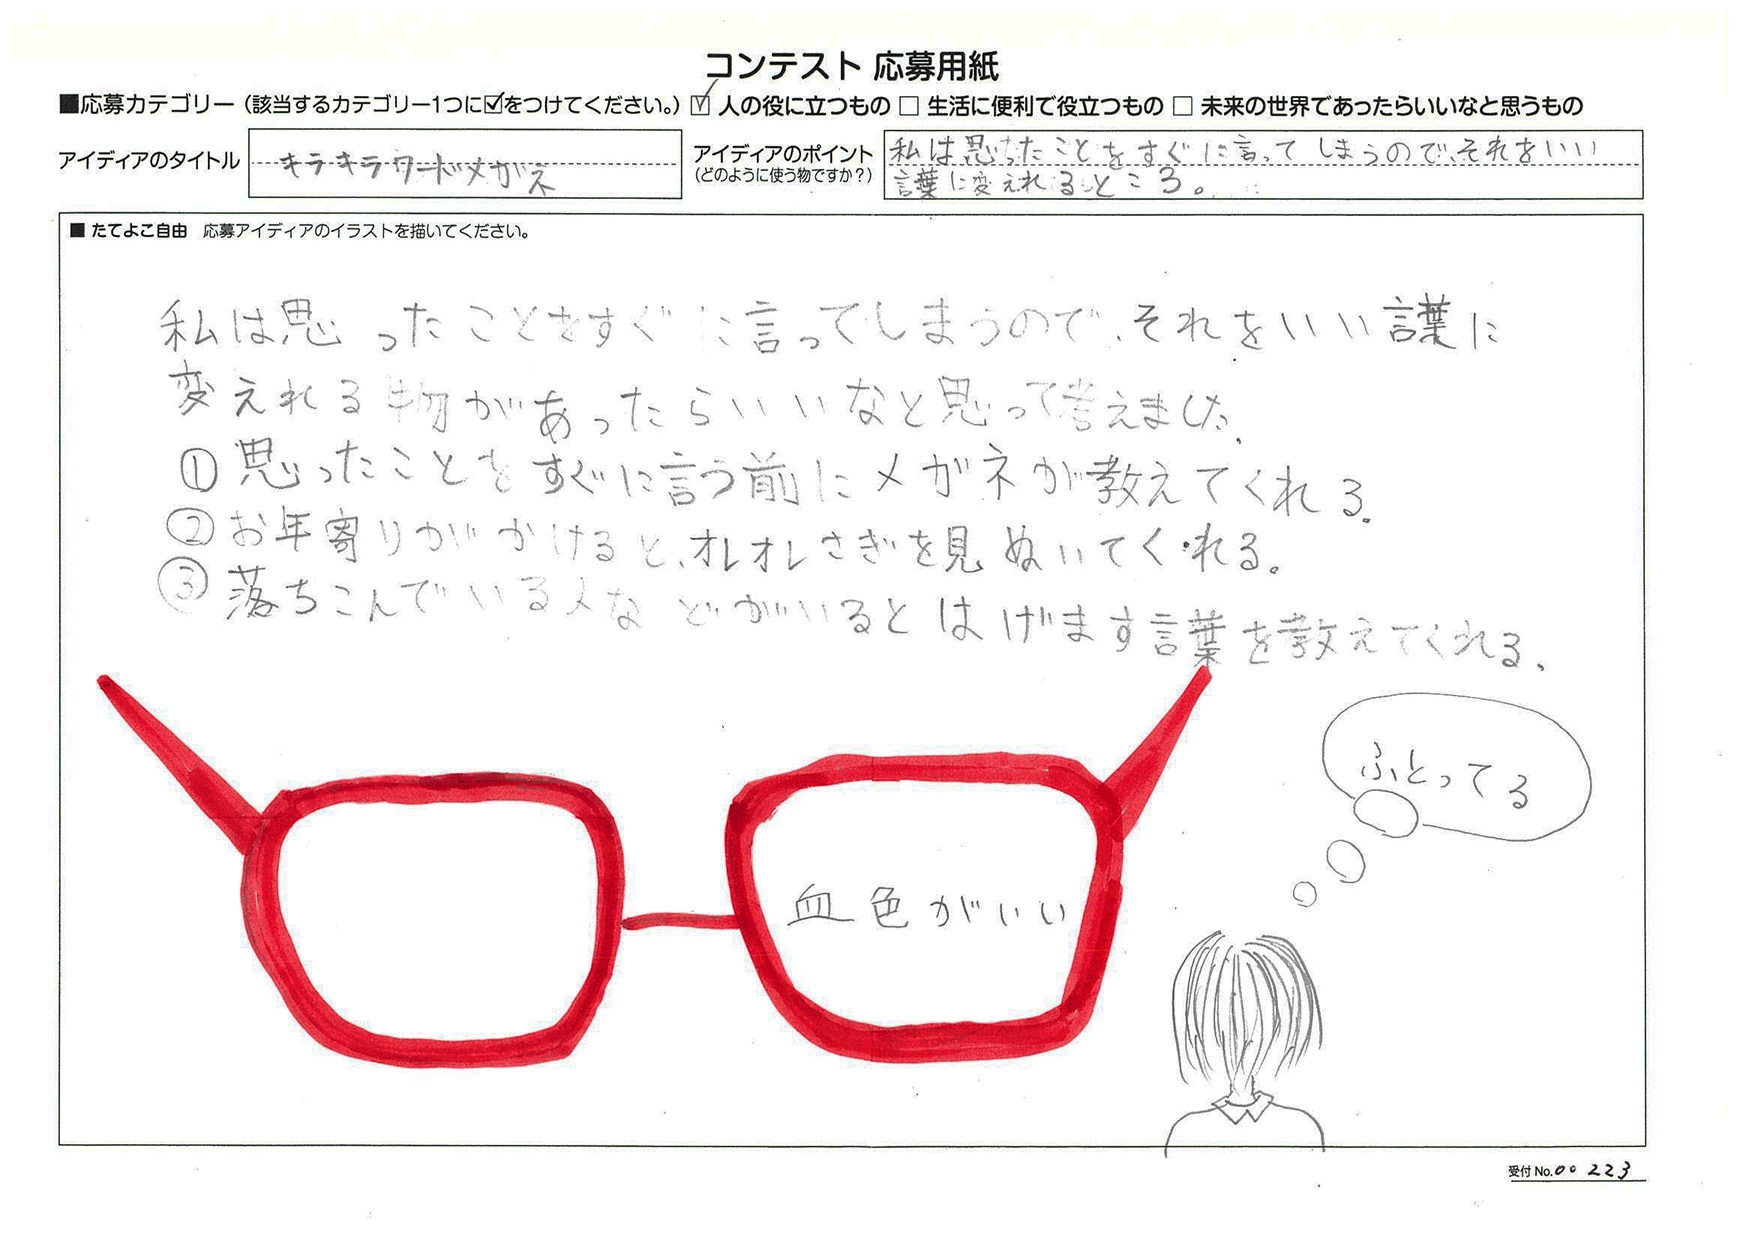 コンテスト 応募用紙
■応募カテゴリー（該当するカテゴリー1つに☑をつけてください。）☑ 人の役に立つもの □ 生活に便利で役立つもの □ 未来の世界であったらいいなと思うもの
アイディアのタイトル
キラキラワードメガネ
アイディアのポイント
（どのように使う物ですか？）
私は思ったことをすぐに言ってしまうので、それをいい
言葉に変えれるところ。
■ たてよこ自由 応募アイディアのイラストを描いてください。
私は思ったことをすぐに言ってしまうので、それをいい言葉に
変えれる物があったらいいなと思って考えました。
① 思ったことをすぐに言う前にメガネが教えてくれる。
② お年寄りがかけると、オレオレさぎを見ぬいてくれる。
③ 落ちこんでいる人などがいるとはげます言葉を教えてくれる。
ふとってる
血色がいい
受付No.00223